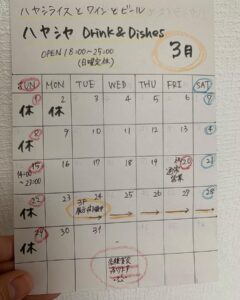 ハヤシライスとワインとビール
ハヤシヤ Drink & Dishes
OPEN 18:00~25:00
(日曜定休)
3月
SUN MON TUE WED THU FRI SAT
1 2 3 4 5 6 7
休 休
8 9 10 11 12 13 14
休
15 16 17 18 19 20 21
14:00
~23:00
祝
通常
営業
22 23 24 25 26 27 28
休 休
29 30 31
休